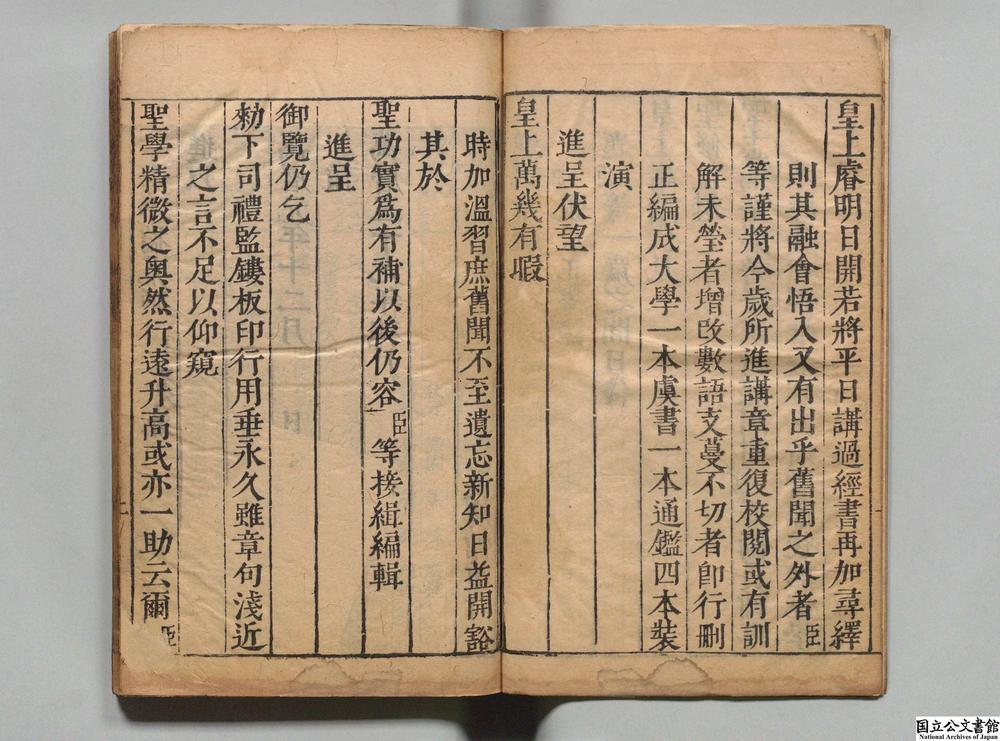 皇上睿明日開若將平日講過經書再加尋繹
則其融會悟入又有出乎舊聞之外者臣
等謹將今歲所進講章重復校閱或有訓
解未瑩者增改數語支蔓不切者卽行刪
正編成大學一本虞書一本通鑑四本裝
演
進呈伏望
皇上萬幾有暇
時加溫習庶舊聞不至遺忘新知日益開豁
其於
聖功實爲有補以後仍容臣等接緝編輯
進呈
御覽仍乞
勑下司禮監鏤板印行用垂永久雖章句淺近
之言不足以仰窺
聖學精微之奧然行遠升高或亦一助云爾臣
国立公文書館
National Archives of Japan